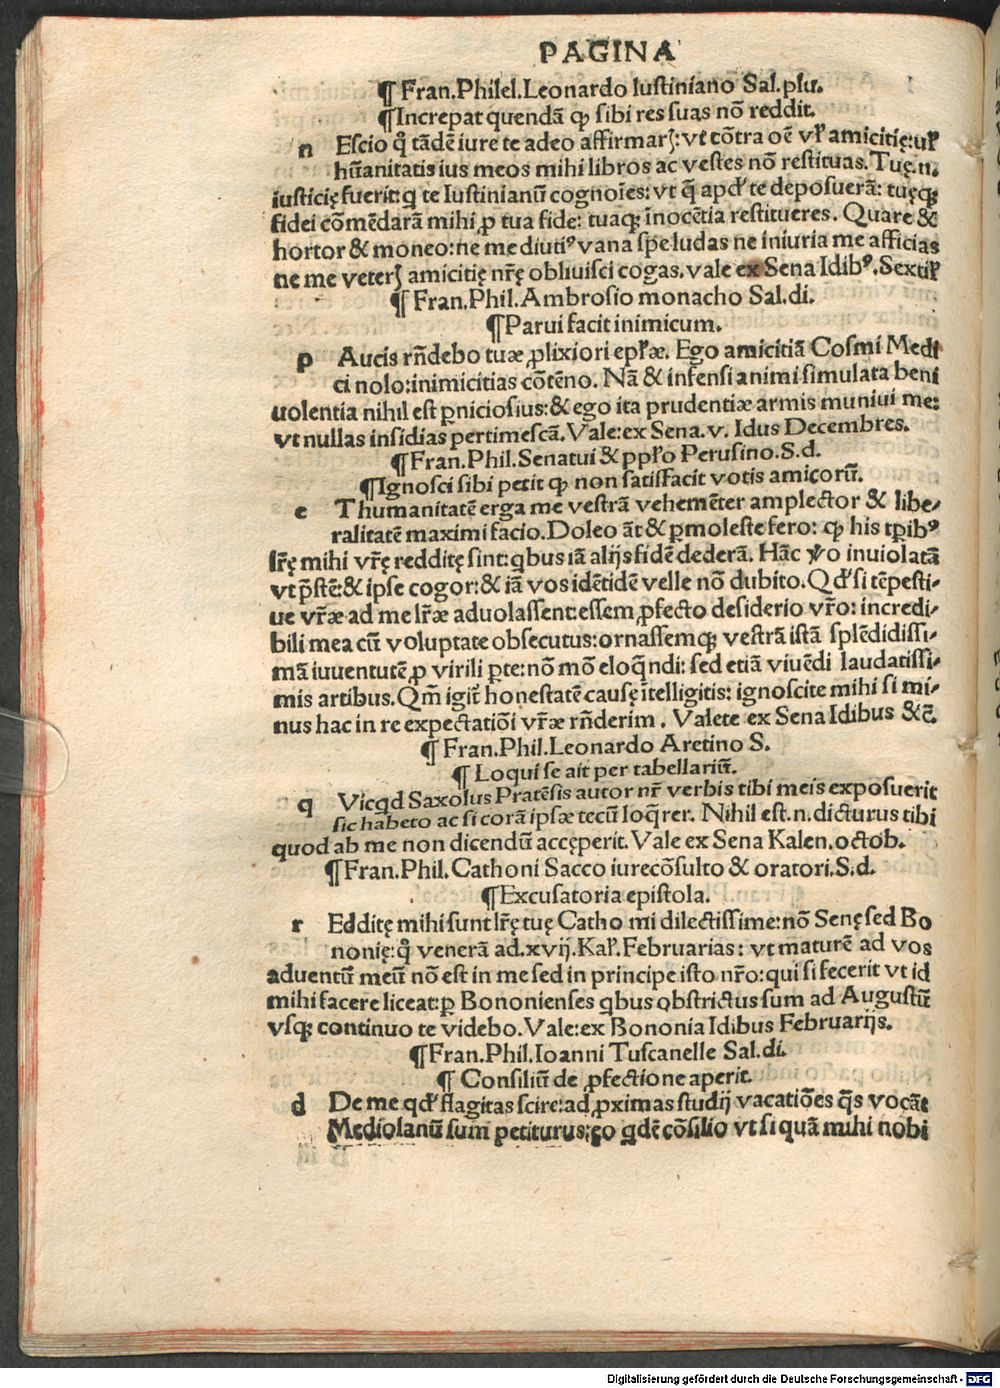 PAGINA
¶Fran.Philel.Leonardo Iustiniano Sal.plu.
¶Increpat quendã ꝙ sibi res suas nõ reddit.
n Escio q̃ tãdẽ iure te adeo affirmarꝭ: vt cõtra oẽ vł amicitię:uł
hũanitatis ius meos mihi libros ac vestes nõ restituas.Tuę.n.
iusticię fuerit:q te Iustinianũ cognoĩes:vt q̃ apđ te deposuerã: tuęqꝫ
fidei cõmẽdarã mihi ꝓ tua fide: tuaqꝫ ĩnocẽtia restitueres. Quare &
hortor & moneo:ne me diutiꝰ vana spe ludas ne iniuria me afficias
ne me veterꝭ amicitię nr̃ę obliuisci cogas.vale ex Sena Idibꝰ.Sextił
¶Fran.Phil.Ambrosio monacho Sal.di.
¶Parui facit inimicum.
p Aucis rñdebo tuæ ꝓlixiori epłæ. Ego amicitiã Cosmi Medi
ci nolo:inimicitias cõtẽno. Nã & infensi animi simulata beni
uolentia nihil est ꝑniciosius:& ego ita prudentiæ armis muniui me:
vt nullas insidias pertimescã.Vale:ex Sena.v. Idus Decembres.
¶Fran.Phil.Senatui & ppło Perusino.S.d.
¶Ignosci sibi petit ꝙ non satisfacit votis amicorũ.
e T humanitatẽ erga me vestrã vehemẽter amplector & libe-
ralitatẽ maximi facio.Doleo ãt & ꝑmoleste fero: ꝙ his tꝑibꝰ
lr̃ę mihi vr̃ę redditę sint:qbus iã alijs fidẽ dederã. Hãc ṽo inuiolatã
vt p̃stẽ:& ipse cogor:& iã vos idẽtidẽ velle nõ dubito.Qđ si tẽpesti-
ue vr̃æ ad me lr̃æ aduolassent:essem ꝓfecto desiderio vr̃o: incredi-
bili mea cũ voluptate obsecutus:ornassemqꝫ vestrã istã splẽdidissi-
mã iuuentutẽ ꝓ virili ꝑte:nõ mõ eloq̃ndi: sed etiã viuẽdi laudatissi-
mis artibus.Qm̃ igit̃ honestatẽ causę ĩtelligitis: ignoscite mihi si mi-
nus hac in re expectatiõi vr̃æ rñderim. Valete ex Sena Idibus &c̃.
¶Fran.Phil.Leonardo Aretino S.
¶Loqui se ait per tabellariũ.
q Vicqd Saxolus Pratẽsis autor nr̃ verbis tibi meis exposuerit
sic habeto ac si corã ipsæ tecũ loq̃rer. Nihil est.n.dicturus tibi
quod ab me non dicendũ accęperit.Vale ex Sena Kalen.octob.
¶Fran.Phil.Cathoni Sacco iurecõsulto & oratori.S.d.
¶Excusatoria epistola.
r Edditę mihi sunt lr̃ę tuę Catho mi dilectissime:nõ Senę sed Bo
nonię:q̃ venerã ad.xvij.Kał.Februarias: vt maturẽ ad vos
aduentũ meũ nõ est in me sed in principe isto nr̃o:qui si fecerit vt id
mihi facere liceat:ꝑ Bononienses qbus obstrictus sum ad Augustũ
vsqꝫ continuo te videbo.Vale:ex Bononia Idibus Februarijs.
¶Fran.Phil.Ioanni Tuscanelle Sal.di.
¶Consiliũ de ꝓfectione aperit.
d De me qđ flagitas scire:ad ꝓximas studij vacatiões q̃s vocãt
Mediolanũ sum petiturus:eo qdẽ cõsilio vt si quã mihi nobi
Digitalisierung gefördert durch die Deutsche Forschungsgemeinschaft - DFG